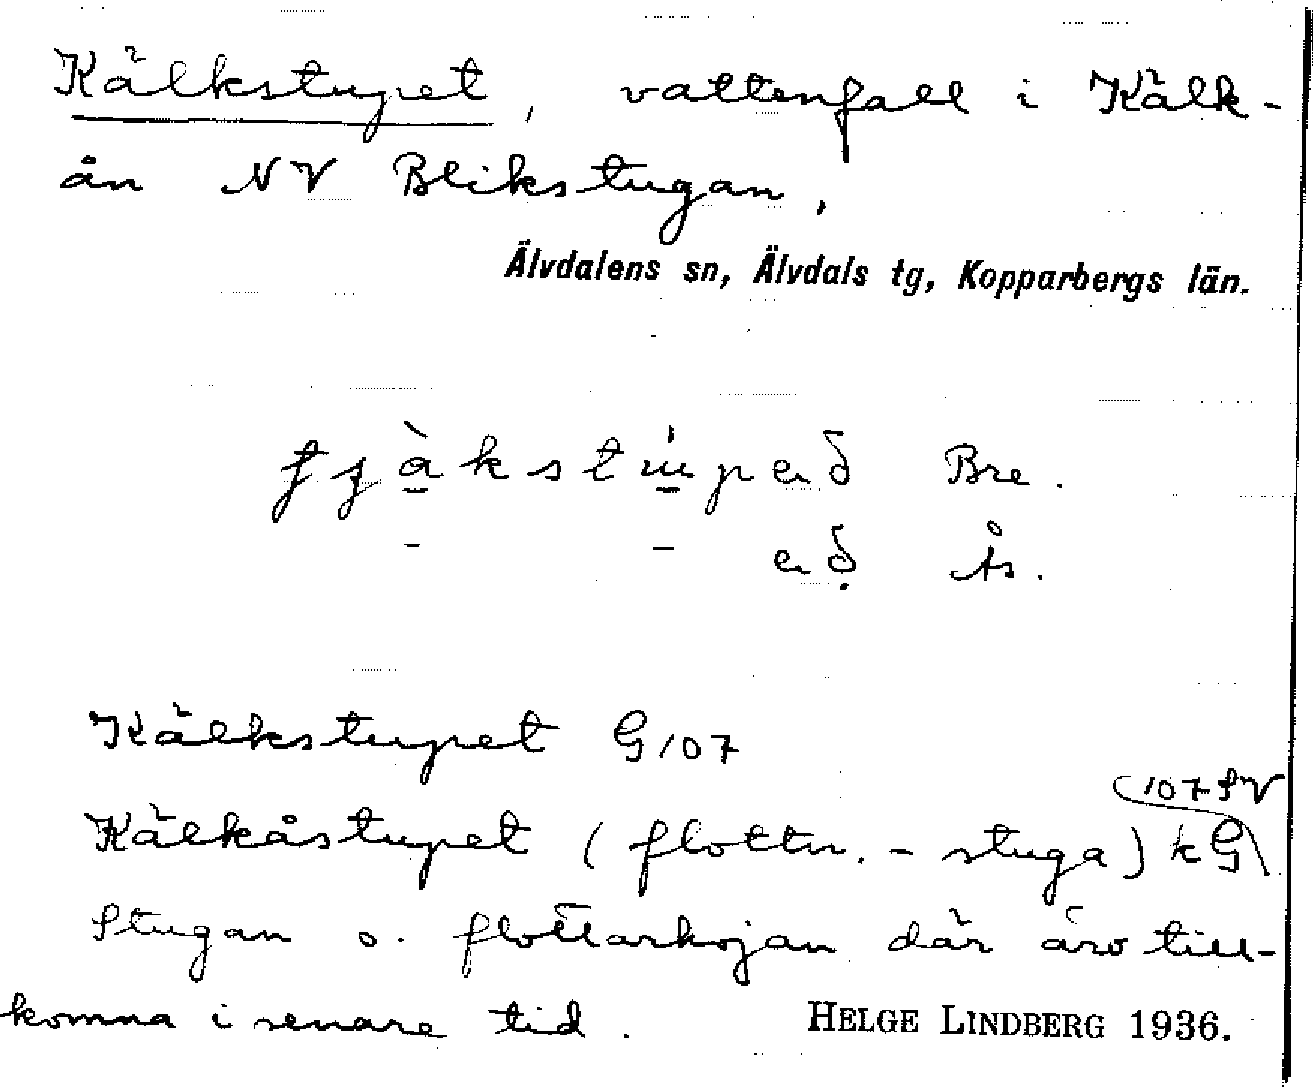 Kälkstupet, vattenfall i Kälk-
ån NV Blikstugan,
Älvdalens sn, Älvdals tg, Kopparbergs län.
Bre.
Ås.
Kälkstupet G 107
107 SV
Kälkåstupet (flottn. - stuga) k G
Stugan o. flottarkojan där äro till-
komna i senare tid.
HELGE LINDBERG 1936.